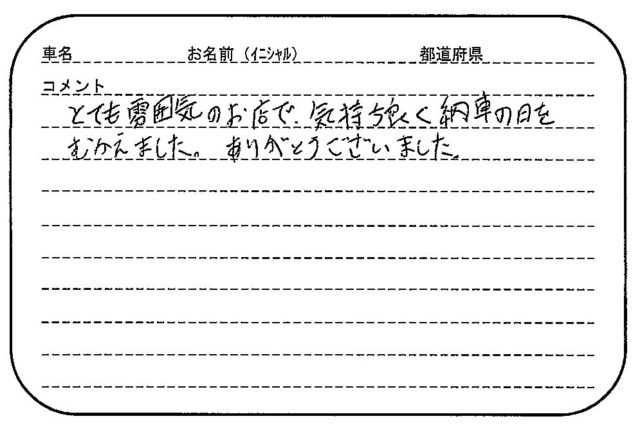 車名 お名前（ｲﾆｼｬﾙ） 都道府県
コメント
とても雰囲気のお店で、気持ち良く納車の日を
むかえました。 ありがとうございました。